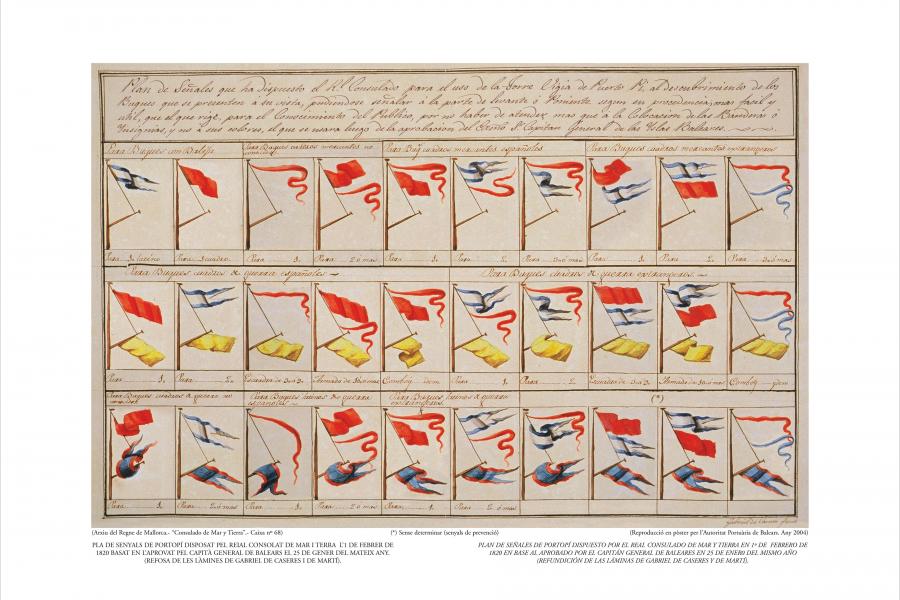 Plan de Señales que ha dispuesto el Rl. Consulado para el uso de la Torre Vigia de Puerto Pi, al descubrimiento de los
Buques que se presenten a su vista, pudiendose señalar a la parte de levante ó Poniente segun su procedencia; mas facil y
util, que el que rige, para el Conocimiento del Publico, por no haber de atender mas que a la Colocacion de las Banderas ó
Insignias, y no á sus colores, el que se usara luego de la aprobacion del Capitan General de las Islas Baleares.
Para Buques con Balija
Para Buques cuadros mercantes no
Para Buq. cuadros mercantes españoles
Para Buques cuadros mercantes extrangeros
Para 1 latino
Para 1 cuadro
Para 1.
Para 2 ó mas
Para 1.
Para 2.
Para 3 ó mas
Para 1.
Para 2.
Para 3 ó mas
Para Buques cuadros de guerra españoles
Para Buques cuadros de guerra extrangeros.
Para 1.
Para 2.
Escuadra de 3 a 9.
Armada de 10 ó mas
Comboy idem
Para 1.
Para 2.
Escuadra de 3 a 9.
Armada de 10 ó mas
Comboy idem
Para Buques cuadros de guerra no
Para Buques latinos de guerra
españoles
Para Buques latinos de guerra
extrangeros.
(*)
Para 1.
Para 2 ó mas
Para 1.
Para 2 ó mas
Para 1.
Para 2 ó mas
(Arxiu del Regne de Mallorca.- "Consulado de Mar y Tierra".- Caixa nº 68)
(*) Sense determinar (senyals de prevenció)
(Reproducció en pòster per l'Autoritat Portuària de Balears. Any 2004)
PLA DE SENYALS DE PORTOPÍ DISPOSAT PEL REIAL CONSOLAT DE MAR I TERRA L'1 DE FEBRER DE
1820 BASAT EN L'APROVAT PEL CAPITÀ GENERAL DE BALEARS EL 25 DE GENER DEL MATEIX ANY.
(REFOSA DE LES LÀMINES DE GABRIEL DE CASERES I DE MARTÍ).
PLAN DE SEÑALES DE PORTOPÍ DISPUESTO POR EL REAL CONSULADO DE MAR Y TIERRA EN 1º DE FEBRERO DE
1820 EN BASE AL APROBADO POR EL CAPITÁN GENERAL DE BALEARES EN 25 DE ENERO DEL MISMO AÑO
(REFUNDICIÓN DE LAS LÁMINAS DE GABRIEL DE CASERES Y DE MARTÍ).